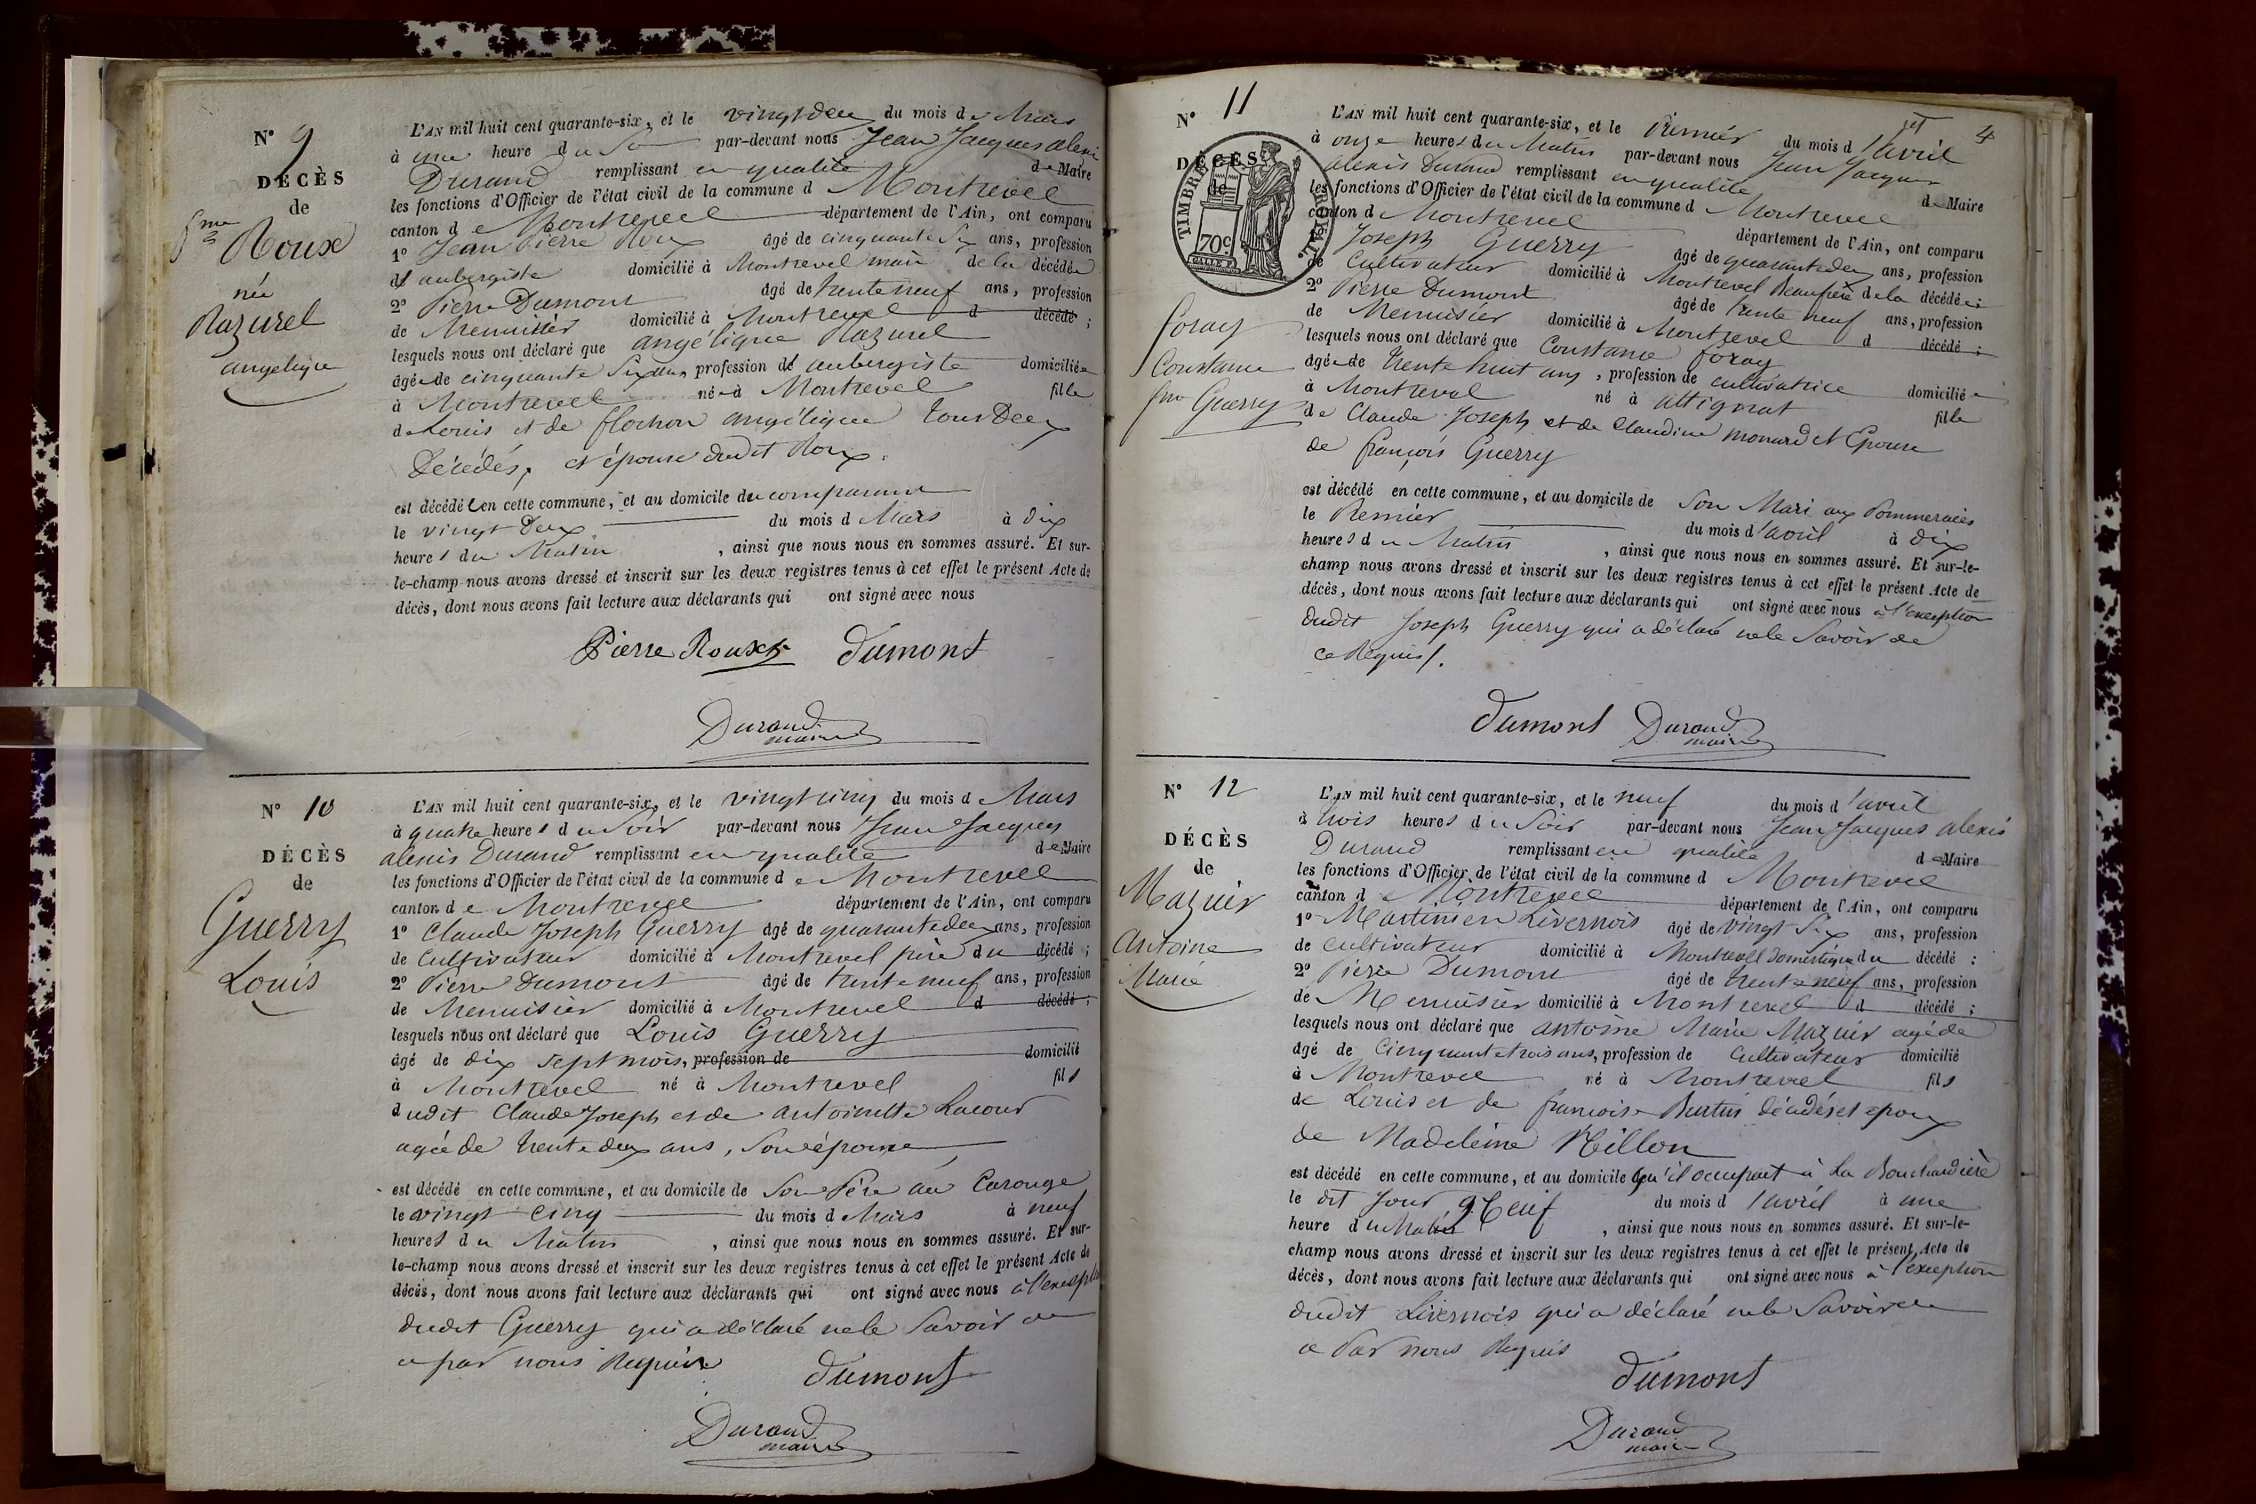 N° 9
DÉCÈS
de
fme
Roux
née
Razurel
angelique
L'AN mil huit cent quarante-six, et le vingt deux du mois de Mars
à une heure du Soir par-devant nous Jean Jacques alexis
Durand remplissant en qualité de Maire
les fonctions d'Officier de l'état civil de la commune d Montrevel
canton de Montrevel département de l'Ain, ont comparu
1° Jean Pierre Roux âgé de cinquante Six ans, profession
d'aubergiste domicilié à Montrevel mari de la décédée
2° Pierre Dumont âgé de trente neuf ans, profession
de Menuisier domicilié à Montrevel d décédé ;
lesquels nous ont déclaré que angélique Razurel
âgée de cinquante Six ans, profession d'aubergiste domiciliée
à Montrevel née à Montrevel fille
de Louis et de flochon angélique tous Deux
Décédés, et épouse dudit Roux.
est décédée en cette commune, et au domicile du comparant
le vingt Deux du mois d Mars à dix
heures du Matin , ainsi que nous nous en sommes assuré. Et sur-
le-champ nous avons dressé et inscrit sur les deux registres tenus à cet effet le présent Acte de
décès, dont nous avons fait lecture aux déclarants qui ont signé avec nous
Pierre Roux Dumont
Durand
maire
N° 10
DÉCÈS
de
Guerry
Louis
L'AN mil huit cent quarante-six, et le vingt cinq du mois d Mars
à quatre heures du Soir par-devant nous Jean Jacques
alexis Durand remplissant en qualité de Maire
les fonctions d'Officier de l'état civil de la commune de Montrevel
canton de Montrevel département de l'Ain, ont comparu
1° Claude Joseph Guerry âgé de quarante deux ans, profession
de Cultivateur domicilié à Montrevel père du décédé ;
2° Pierre Dumont âgé de trente neuf ans, profession
de Menuisier domicilié à Montrevel d décédé ;
lesquels nous ont déclaré que Louis Guerry
âgé de dix sept mois, profession de domicilié
à Montrevel né à Montrevel fils
dudit Claude Joseph et de antoinette Lacour
agée de trente deux ans, Son épouse
est décédé en cette commune, et au domicile de Son Père au Carouge
le vingt cinq du mois d Mars à neuf
heures du Matin , ainsi que nous nous en sommes assuré. Et sur-
le-champ nous avons dressé et inscrit sur les deux registres tenus à cet effet le présent Acte de
décès, dont nous avons fait lecture aux déclarants qui ont signé avec nous à l'exception
dudit Guerry qui a déclaré ne le Savoir de
ce par nous Requis
Dumont
Durand
maire
4
N° 11
DÉCÈS
de
TIMBRE ROYAL
70c
foray
Constance
fme Guerry
L'AN mil huit cent quarante-six, et le Premier du mois d'avril
à onze heures du Matin par-devant nous Jean Jacques
alexis Durand remplissant en qualité de Maire
les fonctions d'Officier de l'état civil de la commune d Montrevel
canton d Montrevel département de l'Ain, ont comparu
Joseph Guerry âgé de quarante deux ans, profession
de Cultivateur domicilié à Montrevel Beaufrère de la décédée ;
2° Pierre Dumont âgé de trente neuf ans, profession
de Menuisier domicilié à Montrevel d décédé ;
lesquels nous ont déclaré que Constance foray
âgée de trente huit ans, profession de cultivatrice domiciliée
à Montrevel né à attignat fille
de Claude Joseph et de Claudine monard et Epouse
de françois Guerry
est décédé en cette commune, et au domicile de Son Mari aux Pommeraies
le Premier du mois d'avril à dix
heures du Matin , ainsi que nous nous en sommes assuré. Et sur-le-
champ nous avons dressé et inscrit sur les deux registres tenus à cet effet le présent Acte de
décès, dont nous avons fait lecture aux déclarants qui ont signé avec nous à l'exception
dudit Joseph Guerry qui a déclaré ne le Savoir de
ce Requis.
Dumont Durand
maire
N° 12
DÉCÈS
de
Mazuir
Antoine
Marie
L'AN mil huit cent quarante-six, et le neuf du mois d'avril
à trois heures du Soir par-devant nous Jean Jacques alexis
Durand remplissant en qualité de Maire
les fonctions d'Officier de l'état civil de la commune d Montrevel
canton de Montrevel département de l'Ain, ont comparu
1° Martinien Livernois âgé de vingt Six ans, profession
de cultivateur domicilié à Montrevel domestique du décédé ;
2° Pierre Dumont âgé de trente neuf ans, profession
de Menuisier domicilié à Montrevel d décédé ;
lesquels nous ont déclaré que antoine Marie Mazuir agé de
âgé de Cinquante trois ans, profession de Cultivateur domicilié
à Montrevel né à Montrevel fils
de Louis et de francoise Burtin décédés et epoux
de Madeleine Rillon
est décédé en cette commune, et au domicile qu'il occupait à La Bouchardière
le dit jour Neuf du mois d'avril à une
heure du Matin , ainsi que nous nous en sommes assuré. Et sur-le-
champ nous avons dressé et inscrit sur les deux registres tenus à cet effet le présent Acte de
décès, dont nous avons fait lecture aux déclarants qui ont signé avec nous à l'exception
dudit Livernois qui a déclaré ne le Savoir de
ce Par nous Requis
Dumont
Durand
maire